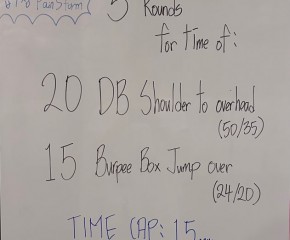 5 Rounds
for Time of:
20 DB Shoulder to overhead
(50/35)
15 Burpee Box Jump over
(24/20)
TIME CAP: 15